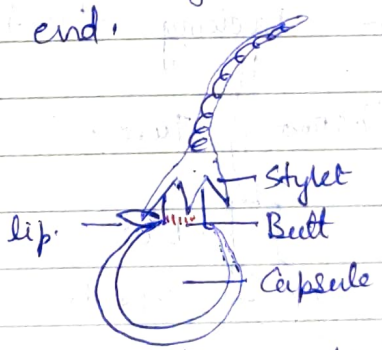 end.
Stylet
lip.
Butt
Capsule